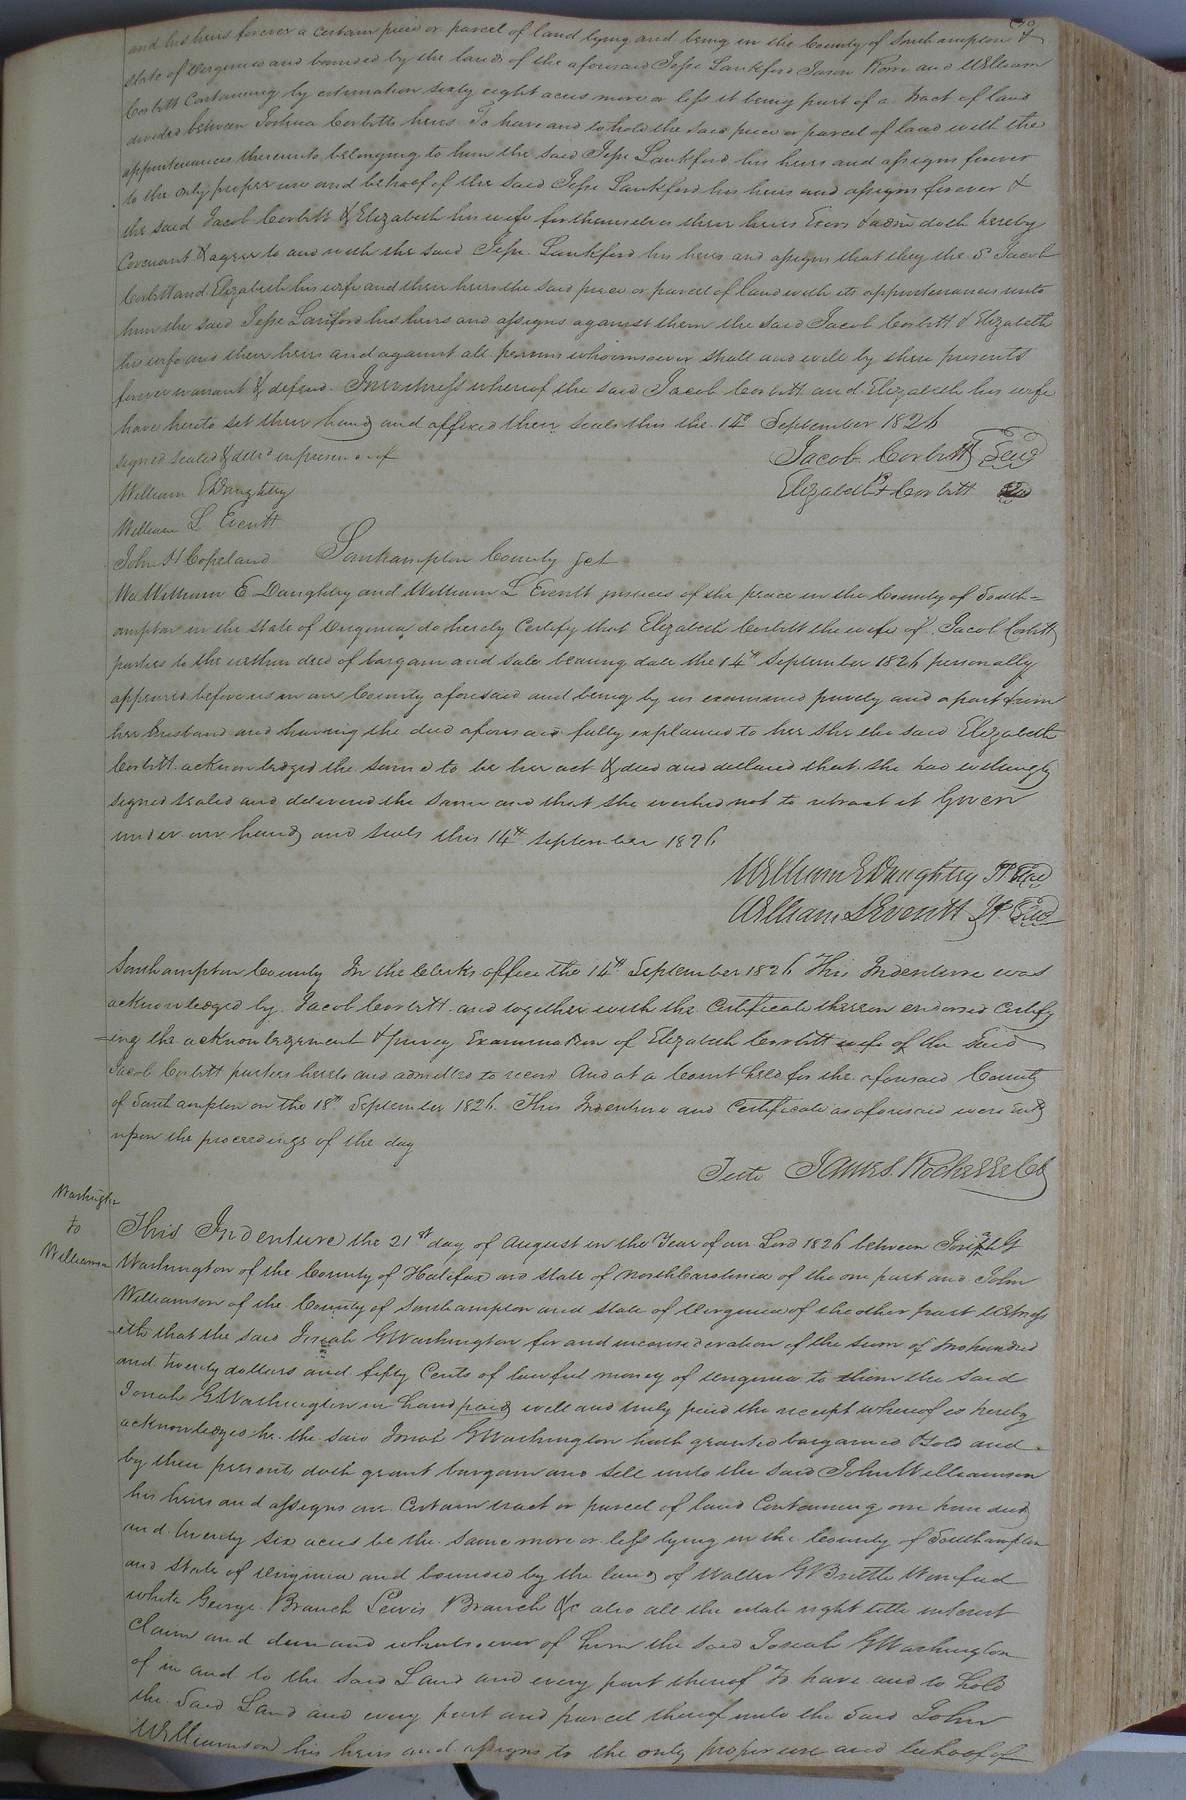 and his heirs forever a certain piece or parcel of land lying and being in the County of Southampton &
state of Virginia and bounded by the lands of the aforesaid Jesse Lankford Jason Rose and William
Corbitt Containing by estimation sixty eight acres more or less it being part of a tract of land
divided between Joshua Corbitts heirs To have and to hold the said piece or parcel of land with the
appurtenances thereunto belonging to him the said Jesse Lankford his heirs and assigns forever
to the only proper use and behoof of the said Jesse Lankford his heirs and assigns forever &
the said Jacob Corbitt & Elizabeth his wife for themselves their heirs Exors & adm doth hereby
Covenant & agree to and with the said Jesse Lankford his heirs and assigns that they the Sd Jacob
Corbitt and Elizabeth his wife and their heirs the said piece or parcel of land with its appurtenances unto
him the said Jesse Lankford his heirs and assigns against them the said Jacob Corbitt & Elizabeth
his wife and their heirs and against all persons whomsoever shall and will by these presents
forever warrant & defend. In witness whereof the said Jacob Corbitt and Elizabeth his wife
have hereto set their hands and affixed their seals this the 14th September 1826
signed sealed & deld in presence of
Jacob Corbitt Seal
William E Daughtry
Elizabeth + Corbitt Seal
William L Everitt
John H Copeland Southampton County Sct
We William E Daughtry and William L Everitt justices of the peace in the County of South=
ampton in the state of Virginia do hereby Certify that Elizabeth Corbitt the wife of Jacob Corbitt
parties to the within deed of bargain and sale bearing date the 14th September 1826 personally
appeared before us in our County aforesaid and being by us examined privily and apart from
her husband and having the deed aforesaid fully explained to her she the said Elizabeth
Corbitt acknowledged the same to be her act & deed and declared that she had willingly
signed sealed and delivered the same and that she wished not to retract it Given
under our hands and seals this 14th September 1826
William E Daughtry JP Seal
William L Everitt JP Seal
Southampton County In the Clerks office the 14th September 1826 This Indenture was
acknowledged by Jacob Corbitt and together with the Certificate thereon endorsed Certify
ing the acknowledgement & privy Examination of Elizabeth Corbitt wife of the Said
Jacob Corbitt parties hereto and admitted to record And at a Court held for the aforesaid County
of Southampton on the 18th September 1826. This Indenture and Certificate as aforesaid were entd
upon the proceedings of the day
Teste James Rochelle Ck
Washington
to
Williamson
This Indenture the 21st day of August in the Year of our Lord 1826 between Josiah G
Washington of the County of Halifax and state of North Carolina of the one part and John
Williamson of the County of Southampton and state of Virginia of the other part Witness
eth that the said Josiah G Washington for and in consideration of the sum of two hundred
and twenty dollars and fifty Cents of lawful money of Virginia to him the said
Josiah G Washington in hand paid well and truly paid the receipt whereof is hereby
acknowledged he the said Josiah G Washington hath granted bargained & sold and
by these presents doth grant bargain and sell unto the said John Williamson
his heirs and assigns one Certain tract or parcel of land Containing one hundred
and twenty six acres be the same more or less lying in the County of Southampton
and state of Virginia and bounded by the lands of Walter G Brittle Winefred
white George Branch Lewis Branch &c also all the estate right title interest
claim and demand whatsoever of him the said Josiah G Washington
of in and to the said Land and every part thereof To have and to hold
the Said Land and every part and parcel thereof unto the Said John
Williamson his heirs and assigns to the only proper use and behoof of